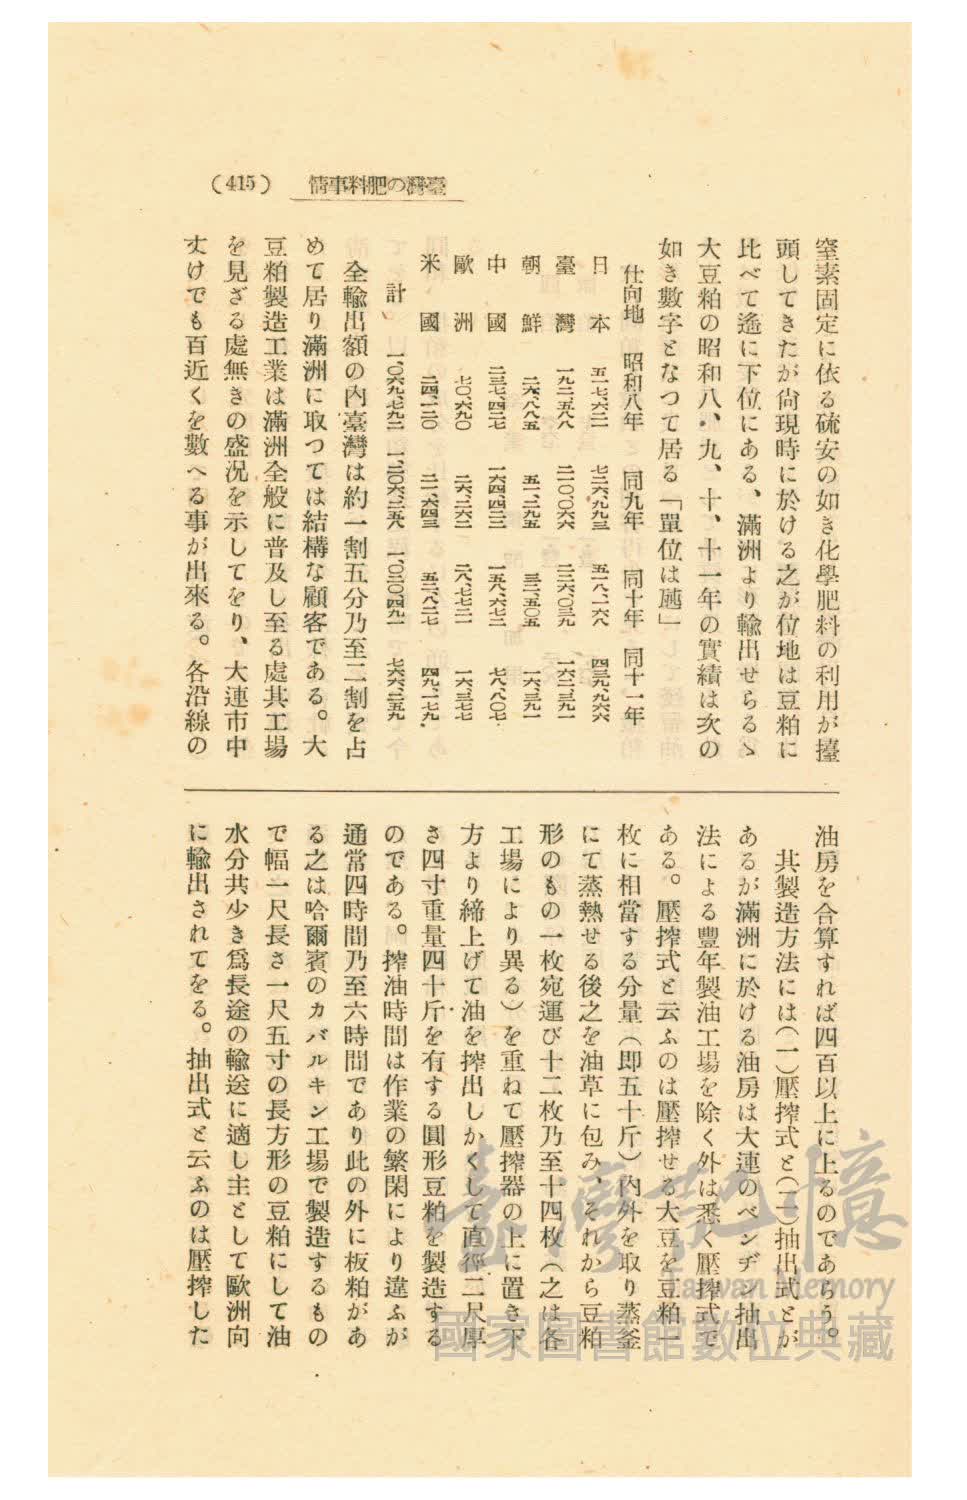 (415) 臺灣の肥料事情
窒素固定に依る硫安の如き化學肥料の利用が擡
頭してきたが尙現時に於ける之が位地は豆粕に
比べて遙に下位にある、滿洲より輸出せらるゝ
大豆粕の昭和八、九、十、十一年の實績は次の
如き數字となつて居る「單位は瓲」
仕向地 昭和八年 同九年 同十年 同十一年
日本 五一七、六二一 七二六、九九三 五一八、一六八 四三九、九六六
臺灣 一九二、五八八 二一〇、〇六六 二二六、〇三九 一六二、三九一
朝鮮 二六、八八五 五一、二九五 三三、五〇五 一六、三九一
中國 二三七、四二七 一六四、四三三 一五八、六七二 七八、八〇七
歐洲 七〇、六九〇 二六、二六二 二八、七七二 一六、三七七
米國 二四、一二〇 二一、六四三 五二、八二七 四九、一七九
計 一、〇六九、七九二 一、二〇六、二五八 一、〇三〇、四九一 七六六、二五九
全輸出額の內臺灣は約一割五分乃至二割を占
めて居り滿洲に取つては結構な顧客である。大
豆粕製造工業は滿洲全般に普及し至る處其工場
を見ざる處無きの盛況を示してをり、大連市中
丈けでも百近くを數へる事が出來る。各沿線の
油房を合算すれば四百以上に上るのであらう。
其製造方法には(一)壓搾式と(二)抽出式とが
あるが滿洲に於ける油房は大連のベンヂン抽出
法による豐年製油工場を除く外は悉く壓搾式で
ある。壓搾式と云ふのは壓搾せる大豆を豆粕一
枚に相當する分量(即五十斤)內外を取り蒸釜
にて蒸熱せる後之を油草に包み、それから豆粕
形のもの一枚宛運び十二枚乃至十四枚(之は各
工場により異る)を重ねて壓搾器の上に置き下
方より締上げて油を搾出しかくして直徑二尺厚
さ四寸重量四十斤を有する圓形豆粕を製造する
のである。搾油時間は作業の繁閑により違ふが
通常四時間乃至六時間であり此の外に板粕があ
る之は哈爾賓のカバルキン工場で製造するもの
で幅一尺長さ一尺五寸の長方形の豆粕にして油
水分共少き爲長途の輸送に適し主として歐洲向
に輸出されてをる。抽出式と云ふのは壓搾した
臺灣記憶
Taiwan Memory
國家圖書館數位典藏